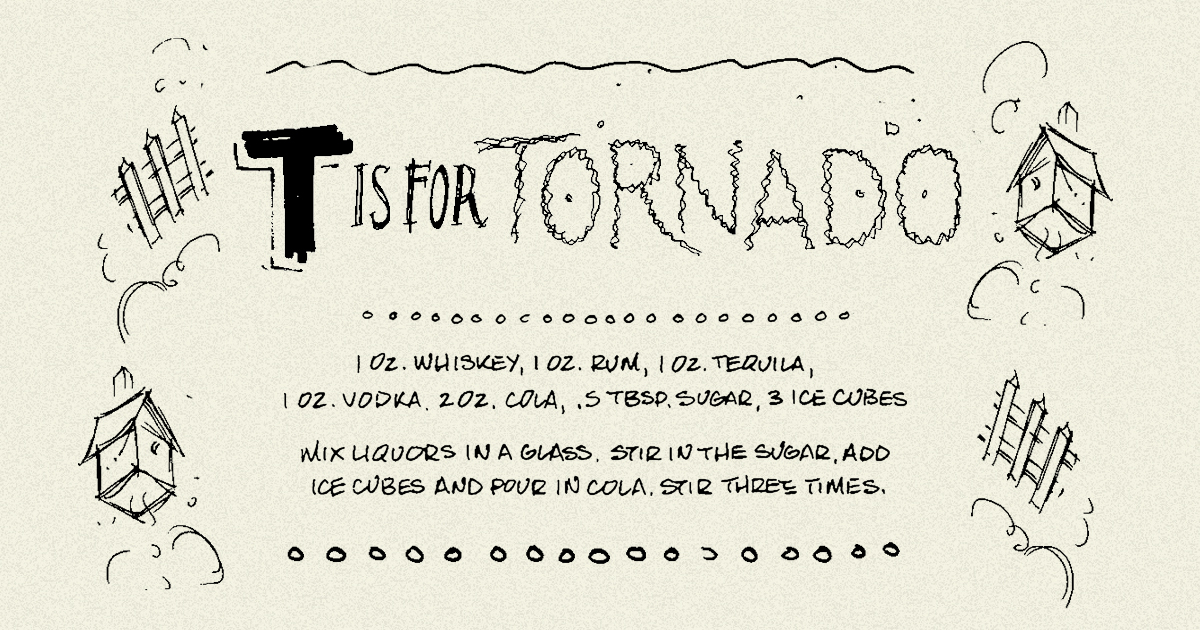 T IS FOR TORNADO
1 OZ. WHISKEY, 1 OZ. RUM, 1 OZ. TEQUILA,
1 OZ. VODKA. 2 OZ. COLA, .5 TBSP. SUGAR, 3 ICE CUBES
MIX LIQUORS IN A GLASS. STIR IN THE SUGAR, ADD
ICE CUBES AND POUR IN COLA. STIR THREE TIMES.